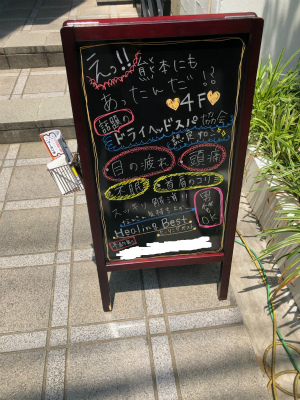 えっ!! 熊本にも
あったんだ!?
4F
話題の
ドライヘッドスパ協会
認定サロン
目の疲れ 頭痛
不眠 首肩のコリ
スッキリ解消!!
男性OK
Healing Best